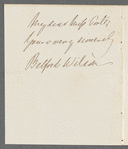 My dear Miss Porter
Yours very sincerely
Belford Wilson